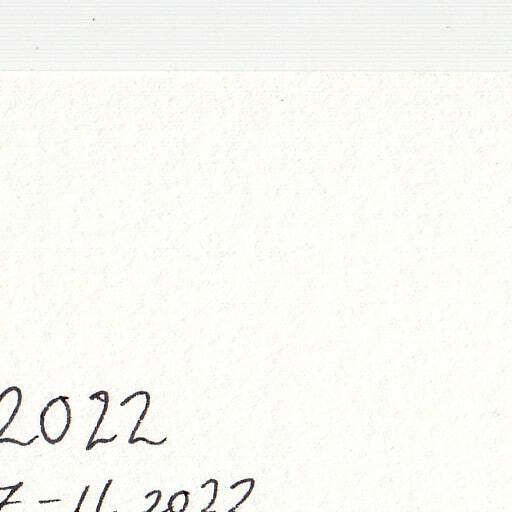 2022
7-11.2022